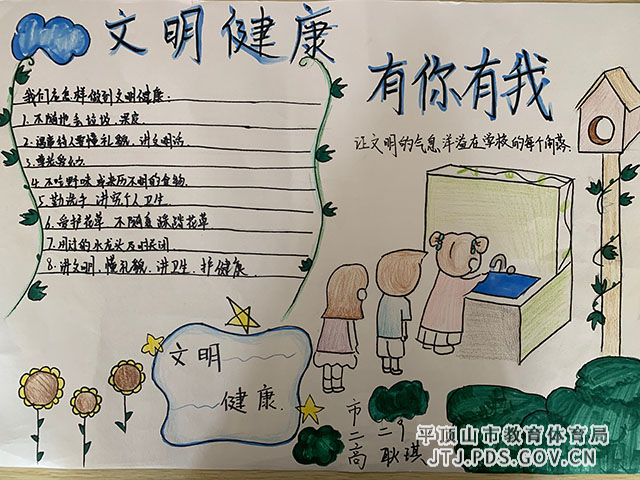 文明健康
有你有我
让文明的气息洋溢在学校的每个角落.
我们应怎样做到文明健康:
1.不随地丢垃圾、果皮.
2.遇事待人要懂礼貌、讲文明话.
4.不吃野味或来历不明的食物.
5.勤洗手 讲究个人卫生.
6.爱护花草 不随意踩踏花草
7.用过的水龙头及时关闭
8.讲文明、懂礼貌、讲卫生、护健康.
文明
健康.
市二高
二9
耿琪
平顶山市教育体育局
JTJ.PDS.GOV.CN